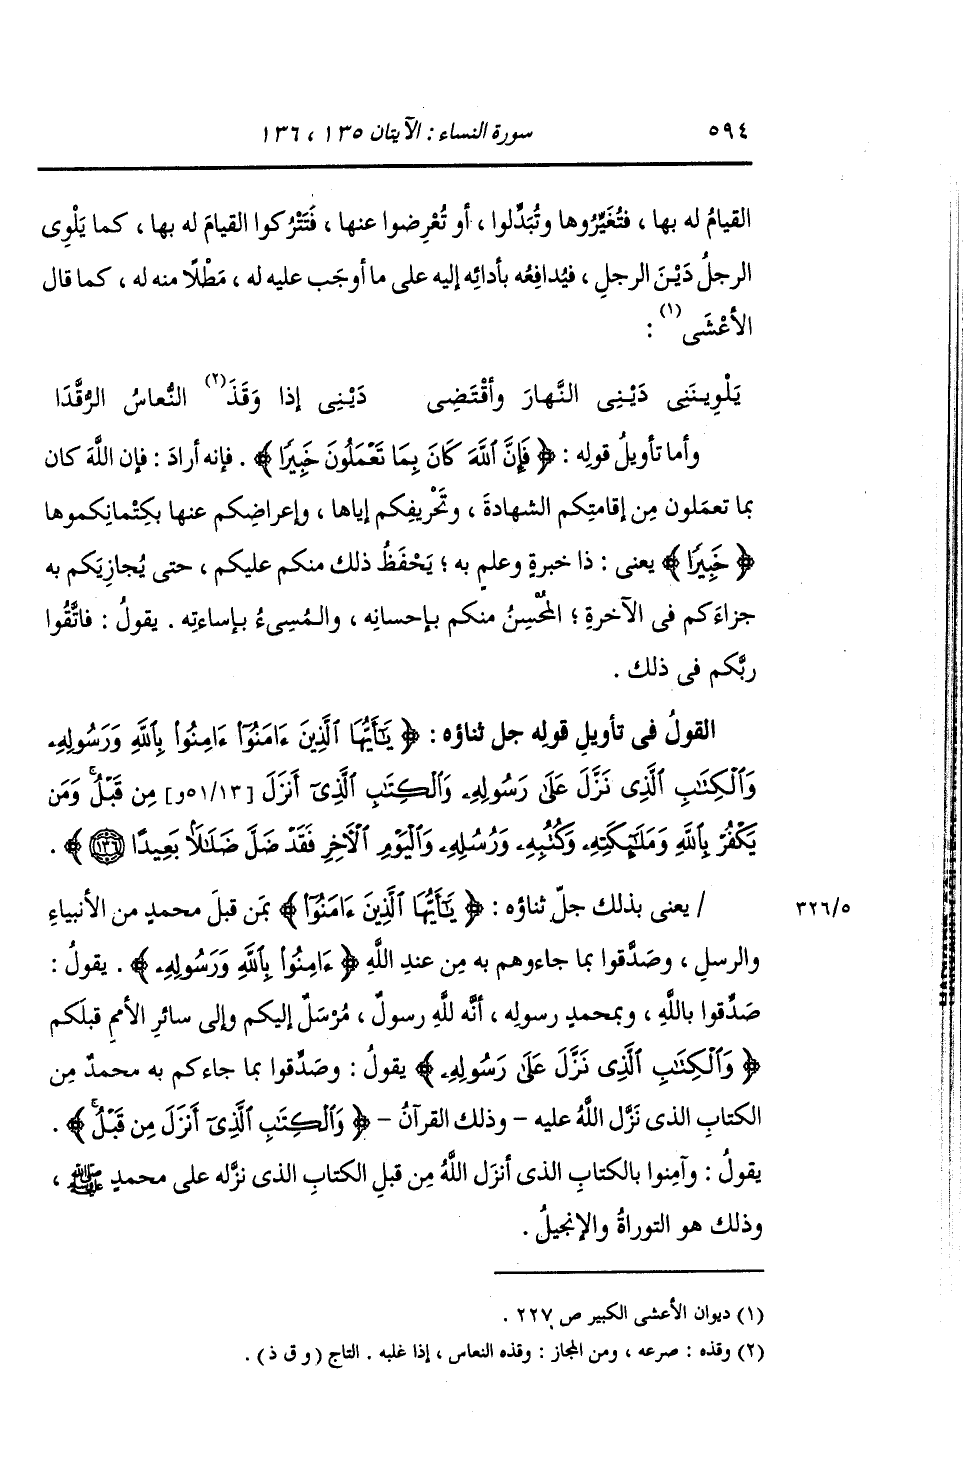 ٥٩٤ سورة النساء : الآيتان ١٣٥ ، ١٣٦
القيامُ له بها ، فتُغَيِّرُوها وتُبَدِّلوا ، أو تُعْرِضوا عنها ، فَتَتْرُكوا القيامَ له بها ، كما يَلْوِى
الرجلُ دَيْنَ الرجلِ ، فيُدافِعُه بأدائِه إليه على ما أوجَب عليه له ، مَطْلًا منه له ، كما قال
الأعْشَى(١) :
يَلْوِينَنِى دَيْنِى النَّهارَ وأقْتَضِى دَيْنِى إذا وَقَذَ(٢) النُّعاسُ الرُّقَّدَا
وأما تأويلُ قولِه : ﴿ فَإِنَّ ٱللَّهَ كَانَ بِمَا تَعْمَلُونَ خَبِيرًا ﴾ . فإنه أرادَ : فإن اللَّهَ كان
بما تعمَلون مِن إقامتِكم الشهادةَ ، وتَحْريفِكم إياها ، وإعراضِكم عنها بكِتْمانِكموها
﴿ خَبِيرًا ﴾ يعنى : ذا خبرةٍ وعلمٍ به ؛ يَحْفَظُ ذلك منكم عليكم ، حتى يُجازِيَكم به
جزاءَكم فى الآخرةِ ؛ المُحْسِنُ منكم بإحسانِه ، والمُسِىءُ بإساءتِه . يقولُ : فاتَّقُوا
ربَّكم فى ذلك .
القولُ فى تأويلِ قولِه جل ثناؤه : ﴿ يَٰٓأَيُّهَا ٱلَّذِينَ ءَامَنُوٓا۟ ءَامِنُوا۟ بِٱللَّهِ وَرَسُولِهِۦ
وَٱلْكِتَٰبِ ٱلَّذِى نَزَّلَ عَلَىٰ رَسُولِهِۦ وَٱلْكِتَٰبِ ٱلَّذِىٓ أَنزَلَ [٥١/١٣و] مِن قَبْلُ ۚ وَمَن
يَكْفُرْ بِٱللَّهِ وَمَلَٰٓئِكَتِهِۦ وَكُتُبِهِۦ وَرُسُلِهِۦ وَٱلْيَوْمِ ٱلْءَاخِرِ فَقَدْ ضَلَّ ضَلَٰلًۢا بَعِيدًا ١٣٦ ﴾ .
٣٢٦/٥ / يعنى بذلك جلّ ثناؤه : ﴿ يَٰٓأَيُّهَا ٱلَّذِينَ ءَامَنُوٓا۟ ﴾ بمَن قبلَ محمدٍ من الأنبياءِ
والرسلِ ، وصَدَّقوا بما جاءوهم به مِن عندِ اللَّهِ ﴿ ءَامِنُوا۟ بِٱللَّهِ وَرَسُولِهِۦ ﴾ . يقولُ :
صَدِّقوا باللَّهِ ، وبمحمدٍ رسولِه ، أنَّه للَّهِ رسولٌ ، مُرْسَلٌ إليكم وإلى سائرِ الأممِ قبلَكم
﴿ وَٱلْكِتَٰبِ ٱلَّذِى نَزَّلَ عَلَىٰ رَسُولِهِۦ ﴾ يقولُ : وصَدِّقوا بما جاءكم به محمدٌ مِن
الكتابِ الذى نَزَّل اللَّهُ عليه - وذلك القرآنُ - ﴿ وَٱلْكِتَٰبِ ٱلَّذِىٓ أَنزَلَ مِن قَبْلُ ۚ ﴾ .
يقولُ : وآمِنوا بالكتابِ الذى أنزَل اللَّهُ مِن قبلِ الكتابِ الذى نزَّله على محمدٍ ﷺ ،
وذلك هو التوراةُ والإنجيلُ .
(١) ديوان الأعشى الكبير ص ٢٢٧ .
(٢) وقذه : صرعه ، ومن المجاز : وقذه النعاس ، إذا غلبه . التاج ( و ق ذ ) .